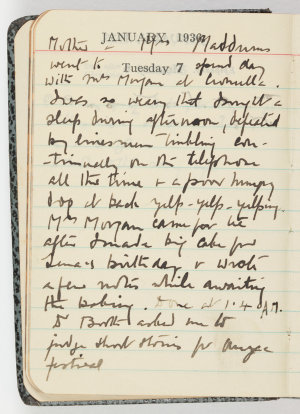 JANUARY, 1936
Tuesday 7
Mother & Mrs Maddrums
went to spend day
with Mrs Morgan at Cronulla.
I was so weary that I sought a
sleep during afternoon, defeated
by linesmen tinkling con-
tinually on the telephone
all the time & a poor hungry
dog at back yelp-yelp-yelping.
Mrs Morgan came for tea
after I made big cake for
Lena's birthday & wrote
a few notes while awaiting
the baking. Done at 1.4 A.M.
Dr Booth asked me to
judge short stories for
festival